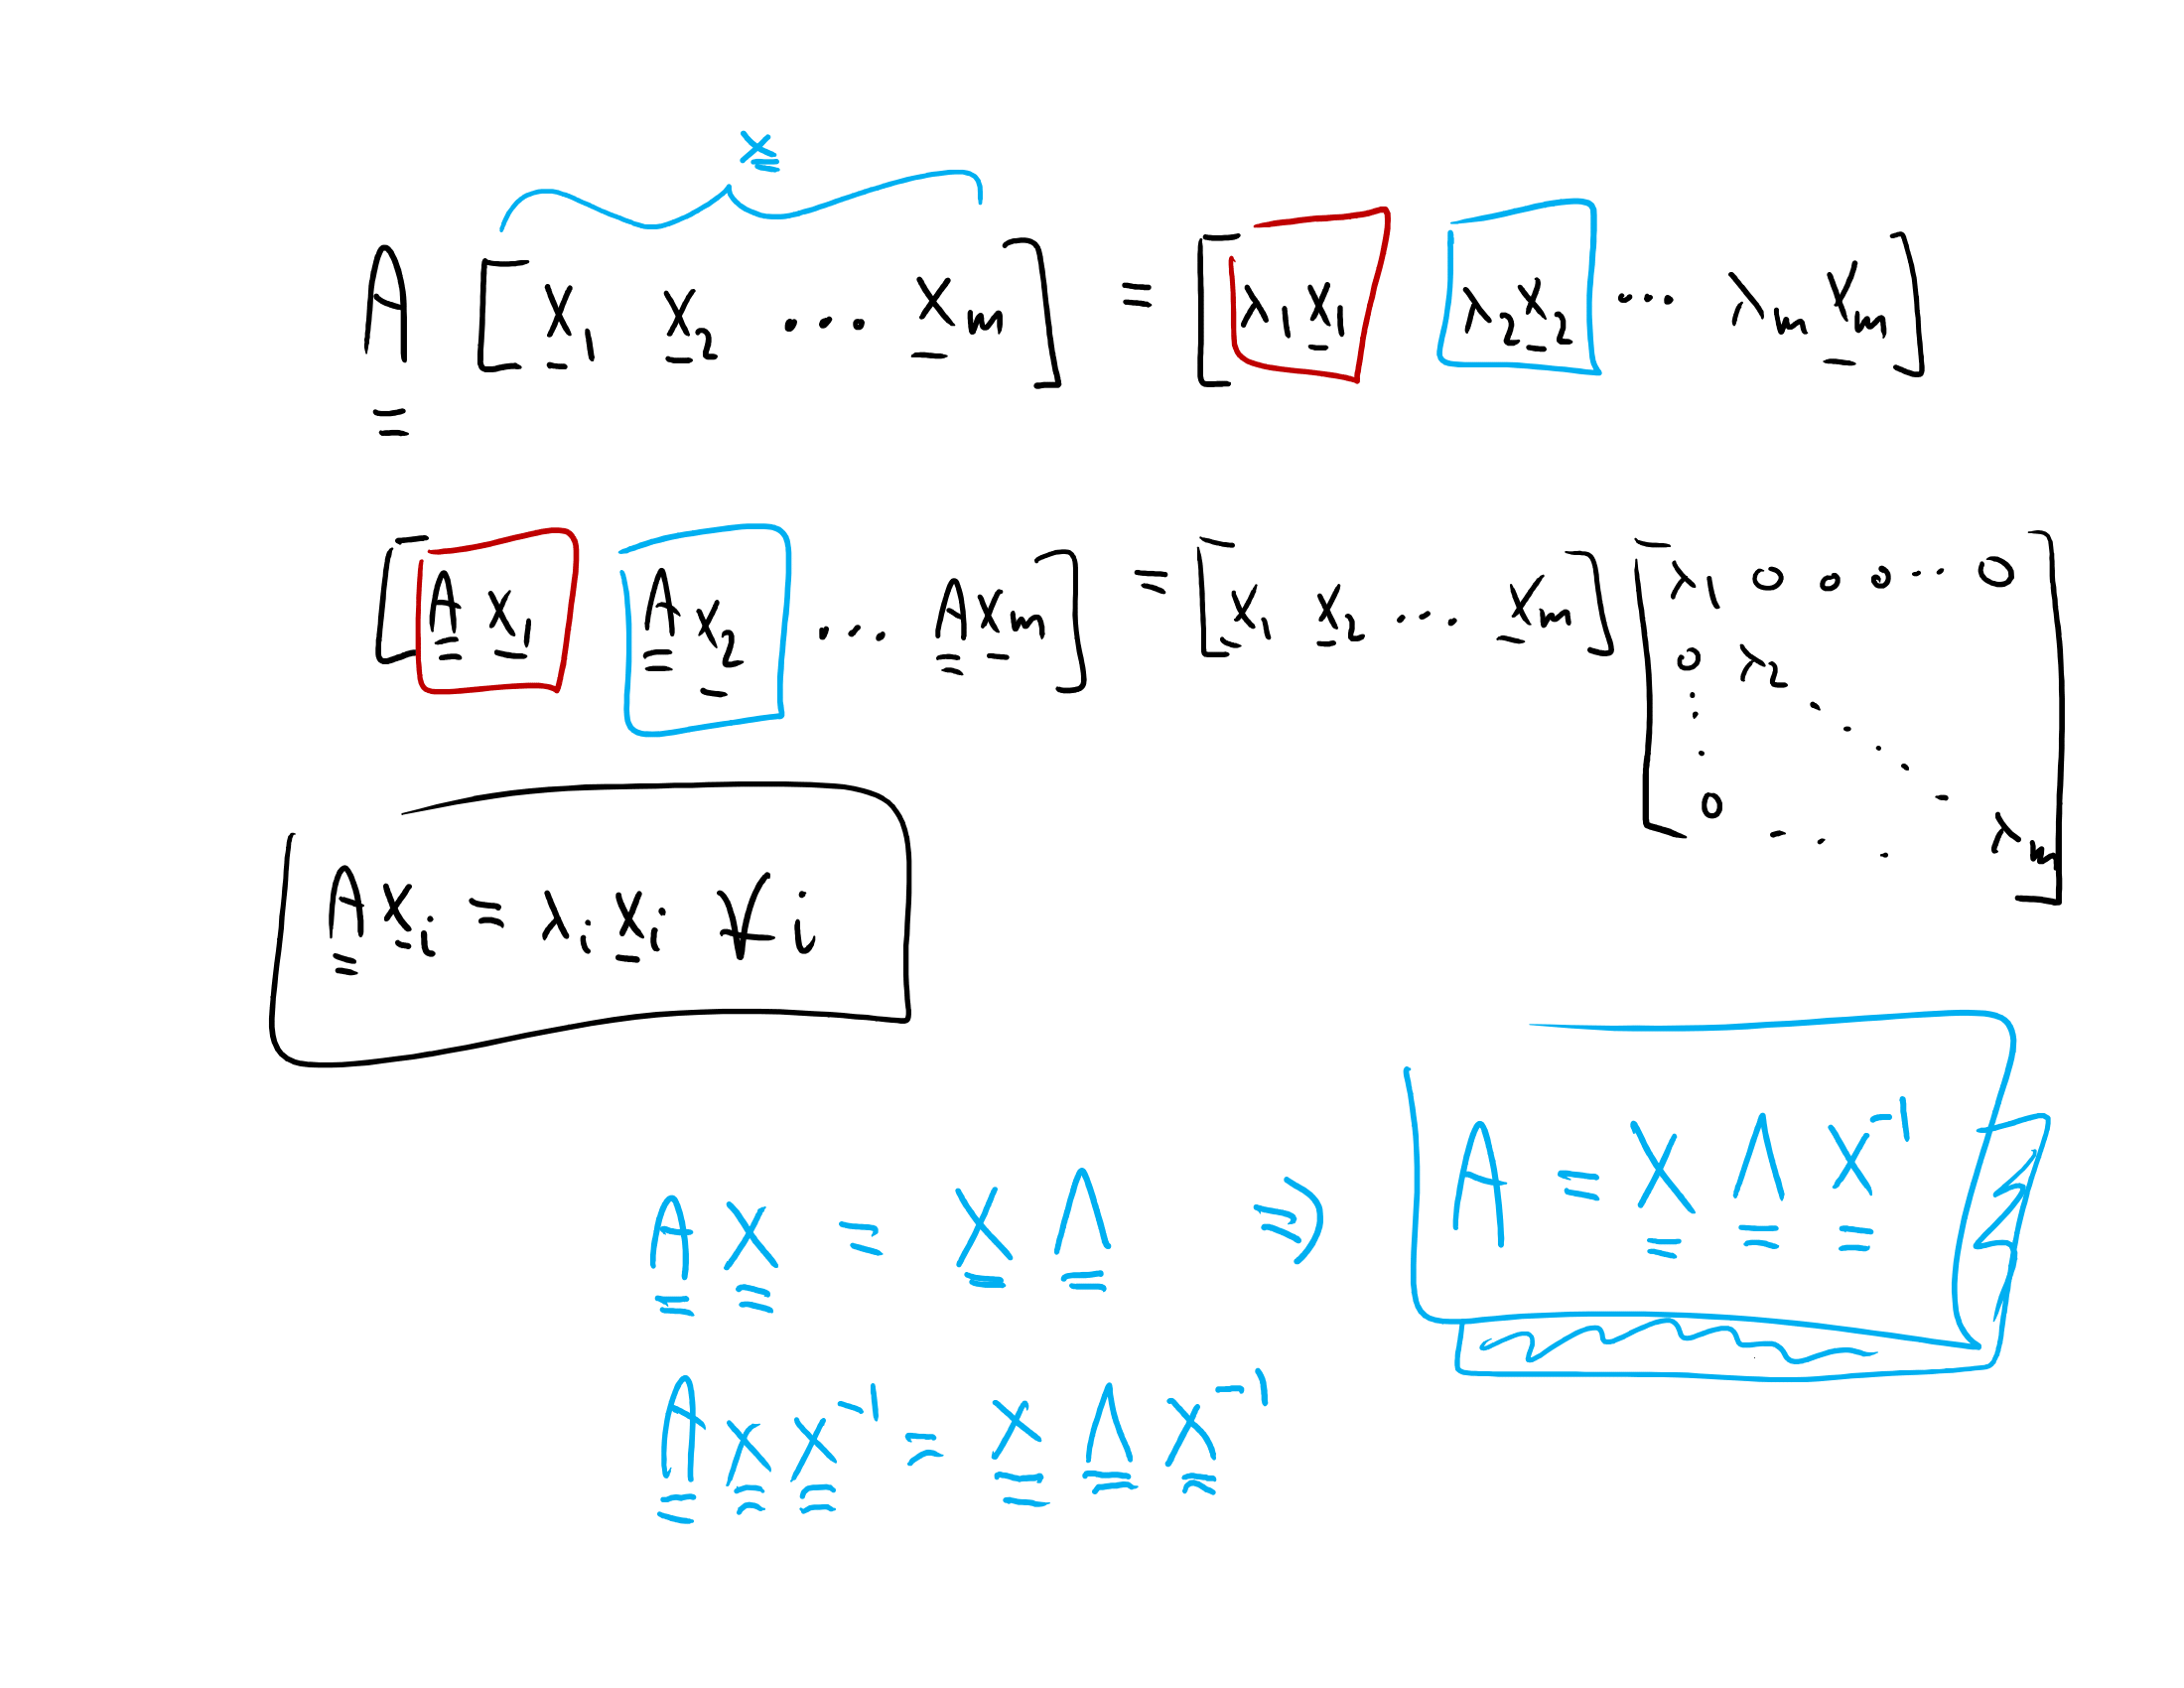 X
A [x₁ x₂ ... xₘ] = [λ₁x₁ λ₂x₂ ... λₘxₘ]
[A x₁ A x₂ ... A xₘ] = [x₁ x₂ ... xₘ] [λ₁ 0 0 0 ... 0
0 λ₂
0 ... λₘ]
A xᵢ = λᵢ xᵢ ∀ i
A X = X Λ ⇒ A = X Λ X⁻¹
A X X⁻¹ = X Λ X⁻¹